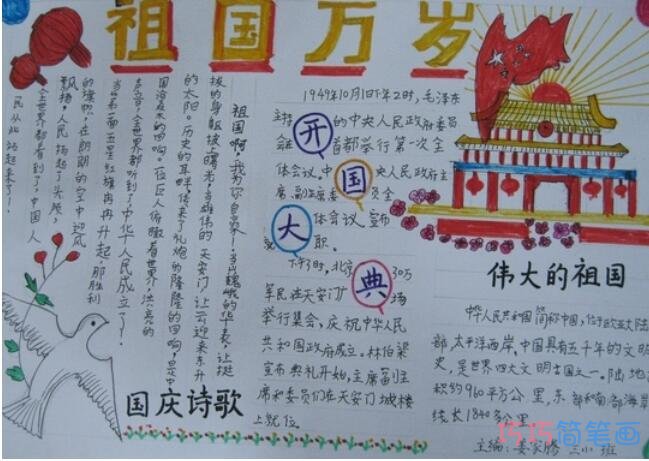 祖国万岁
祖国啊,我为你自豪!当巍峨的华表,让挺
拔的身躯披上曙光,当雄伟的天安门,让云迎来东升
的太阳。历史的耳畔,传来了礼炮的隆隆的回响,
国浴春木的四响。一位巨人俯瞰着世界,洪亮的
声音,全世界都听到了,中华人民成立了!
当第一面五星红旗冉冉升起,那胜利
的旗帜,在朗朗的空中迎风
飘扬,人民扬起了头颅,
全世界都看到了,中国人
民从此站起来了!
国庆诗歌
1949年10月1日下午2时,毛泽东
主持开的中央人民政府委员
会在首都举行第一次全
体会议。中国央人民政府主
席、副主席委员全
大体会议,宣布
就职。
下午3时,北京典30万
军民在天安门广场
举行集会,庆祝中华人民
共和国政府成立。林伯渠
宣布典礼开始,主席副主
席和委员们在天安门城楼
上就位。
伟大的祖国
中华人民共和国简称中国,位于欧亚大陆
部,太平洋西岸。中国具有五千年的文明
史,是世界四大文明古国之一。陆地
积约960平方公里,东部和南部海岸
线长1840多公里。
主编:姜家腾 三小 班
巧巧简笔画